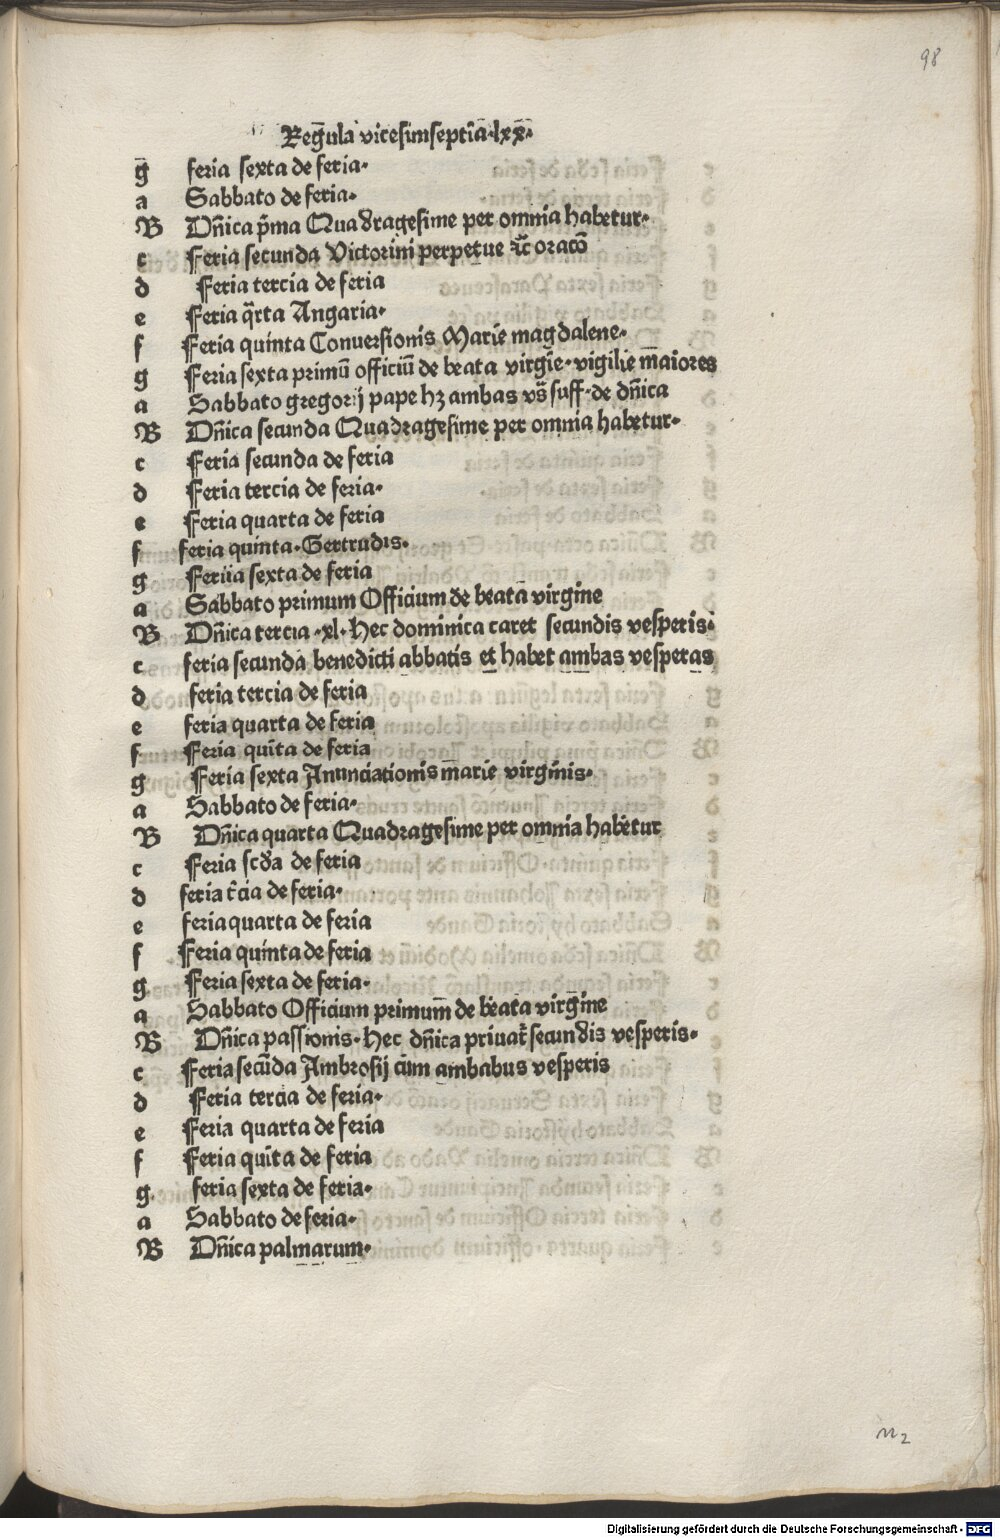 98
Reg̅ula vicesimseptiā·lxx̅·
g̅ feria sexta de feria·
a Sabbato de feria·
B Dn̄ica p̄ma Quadragesime per omnia habetur·
c Feria secunda Victorini perpetue ⁊c̄ oracō
d Feria tercia de feria
e Feria q̄rta Angaria·
f Feria quinta Conuersionis Marie magdalene·
g Feria sexta primū officiū de beata virgīe· vigilie maiores
a Sabbato gregorij pape hꝫ ambas vs̄ suff· de dn̄ica
B Dn̄ica secunda Quadragesime per omnia habetur·
c Feria secunda de feria
d Feria tercia de feria·
e Feria quarta de feria
f feria quinta· Gertrudis·
g Feriia sexta de feria
a Sabbato primum Officium de beata virgine
B Dn̄ica tercia ·xl· Hec dominica caret secundis vesperis·
c feria secunda benedicti abbatis et habet ambas vesperas
d feria tercia de feria
e feria quarta de feria
f Feria quīta de feria
g Feria sexta Anunciationis marie virginis·
a Sabbato de feria·
B Dn̄ica quarta Quadragesime per omnia habetur
c Feria scd̄a de feria
d feria t̄cia de feria·
e feria quarta de feria
f Feria quinta de feria
g Feria sexta de feria·
a Sabbato Officium primum de beata virgine
B Dn̄ica passionis· hec dn̄ica priuat̄ secundis vesperis·
c Feria secūda Ambrosij cum ambabus vesperis
d Feria tercia de feria·
e Feria quarta de feria
f Feria quīta de feria
g· feria sexta de feria·
a Sabbato de feria·
B Dn̄ica palmarum·
n2
Digitalisierung gefördert durch die Deutsche Forschungsgemeinschaft - DFG